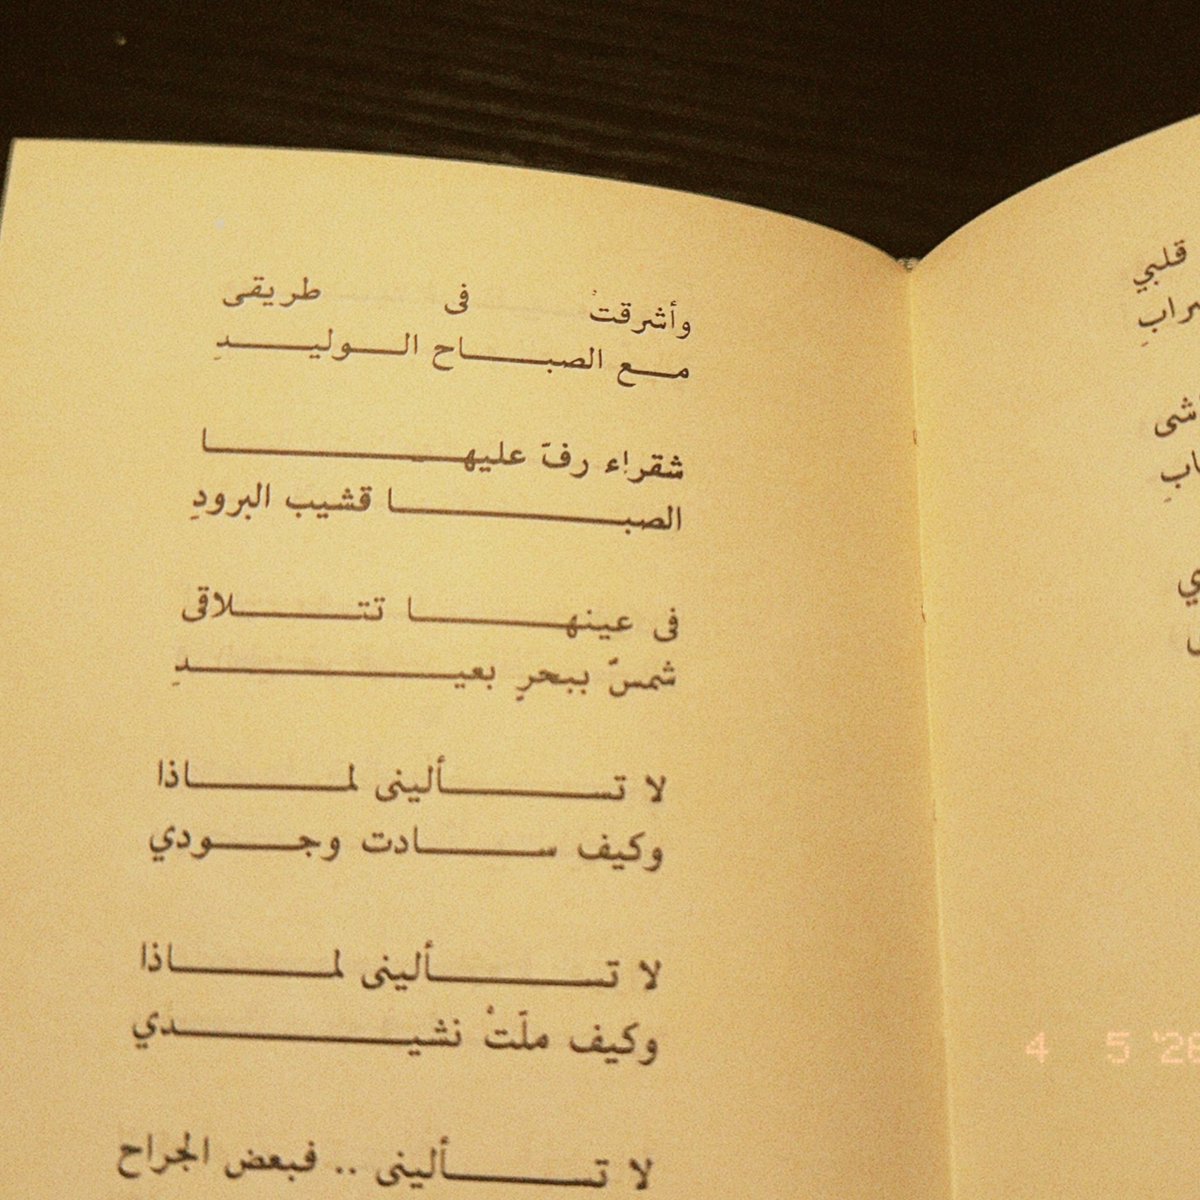 وأشرقتْ فى طريقى
مع الصباح الوليدِ
شقراء رفّ عليها
الصبا قشيب البرودِ
فى عينها تتلاقى
شمسٌ ببحرٍ بعيدِ
لا تسألينى لماذا
وكيف سادت وجودي
لا تسألينى لماذا
وكيف ملّتْ نشيدي
لا تسألينى .. فبعض الجراح
قلبي
4 5 '26